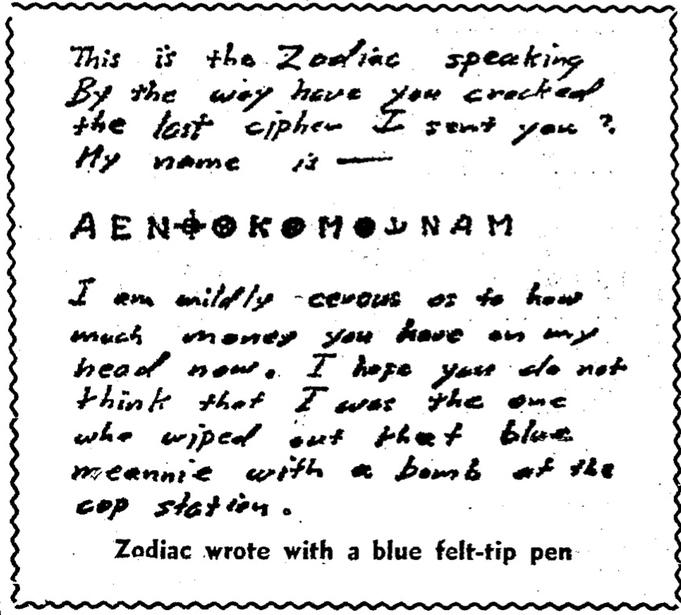 This is the Zodiac speaking
By the way have you cracked
the last cipher I sent you ?
My name is —
A E N ⌖ K M N A M
I am mildly cerous as to how
much money you have on my
head now. I hope you do not
think that I was the one
who wiped out that blue
meannie with a bomb at the
cop station.
Zodiac wrote with a blue felt-tip pen